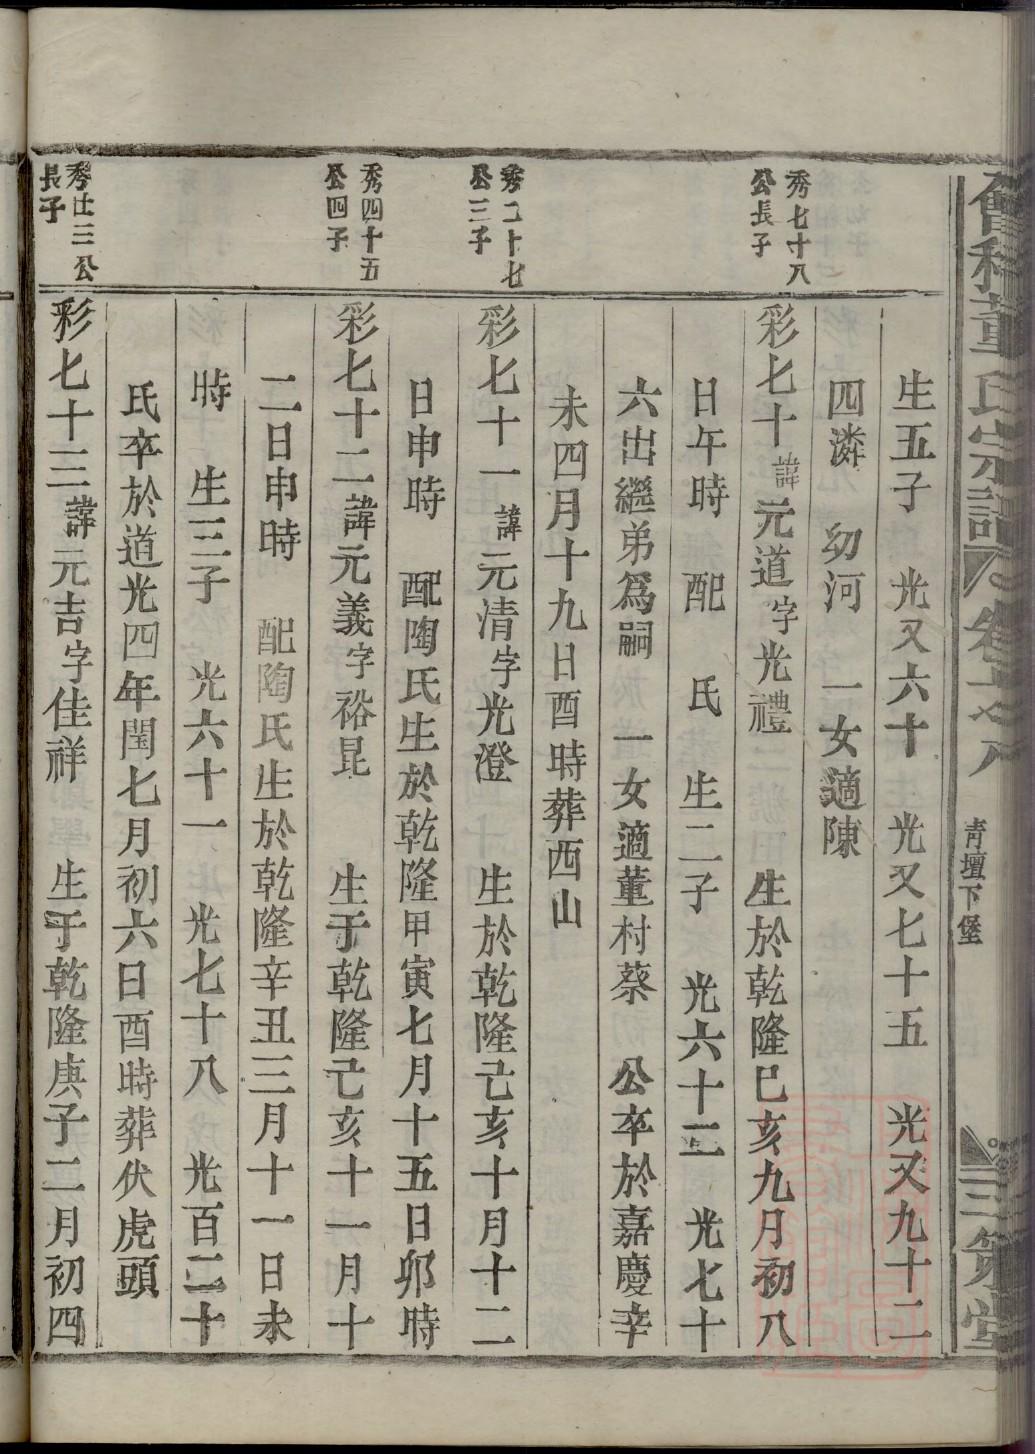 會稽董氏宗譜 卷
青壇下堡
三策堂
生五子 光又六十 光又七十五 光又九十二
四潾 幼河 一女適陳
秀七十八
公長子
彩七十諱元道字光禮 生於乾隆巳亥九月初八
日午時 配 氏 生二子 光六十三 光七十
六出繼弟爲嗣 一女適董村蔡 公卒於嘉慶辛
未四月十九日酉時葬西山
秀二十七
公三子
彩七十一諱元清字光澄 生於乾隆己亥十月十二
日申時 配陶氏生於乾隆甲寅七月十五日卯時
秀四十五
公四子
彩七十二諱元義字裕昆 生于乾隆己亥十一月十
二日申時 配陶氏生於乾隆辛丑三月十一日未
時 生三子 光六十一 光七十八 光百二十
氏卒於道光四年閏七月初六日酉時葬伏虎頭
秀七三公
長子
彩七十三諱元吉字佳祥 生于乾隆庚子二月初四